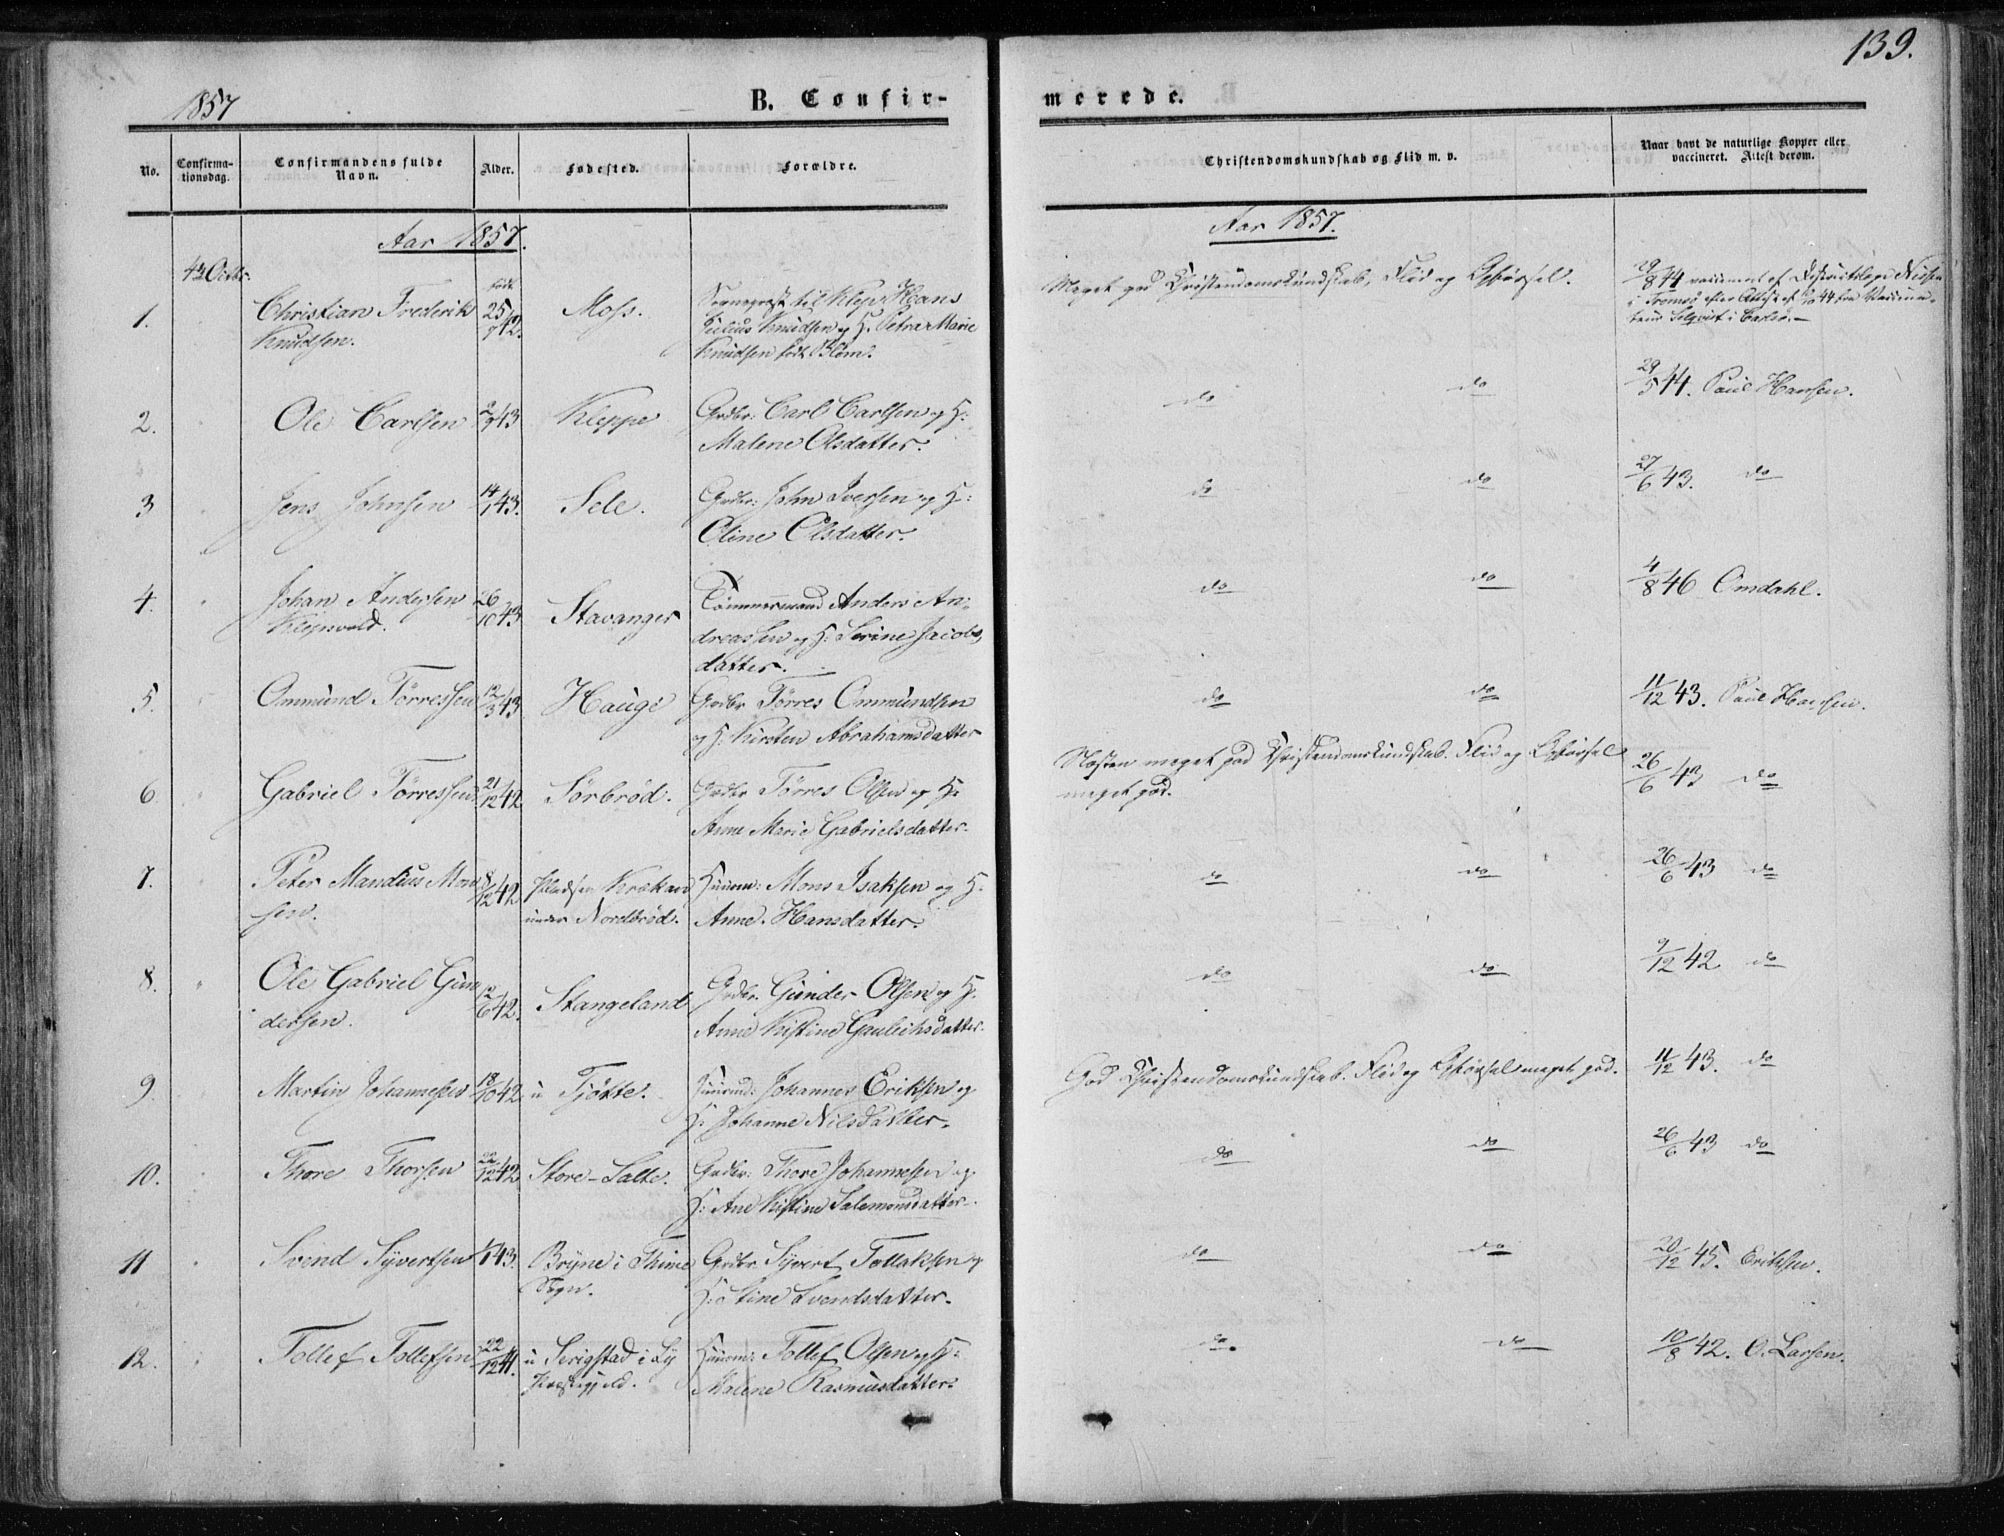 139.
1857
B. Confir-
merede.
No.
Confirma-
tionsdag.
Confirmandens fulde
Navn.
Alder.
Fødested.
Forældre.
Christendomskundskab og Flid m. v.
Naar havt de naturlige Kopper eller
vaccineret. Attest derom.
Aar 1857.
Aar 1857.
4de Octbr.
1.
Christian Frederik
Knudsen.
født
25/9 42.
Moss.
Sognepræst til Klep Hans
Julius Knudsen og H. Petra Marie
Knudsen født Blom.
Meget god Christendomskundskab, Flid og Opførsel.
29/8 44 vaccineret af Districtslæge Nissen
i Tromsø efter Attest af 44 fra Vaccina-
teur i
2.
Ole Carlsen
2/9 43
Kleppe
Grdbr. Carl Carlsen og H:
Malene Olsdatter.
do
do
29/5 44. Paul Hansen.
3
Jens Johnsen
14/1 43.
Sele.
Grdbr. John Iversen og H:
Oline Olsdatter.
do
do
27/6 43. do
4.
Johan Andersen
Klepsvold.
26/10 43
Stavanger
Tømmermand Anders An-
dreassen og H. Serine Jacobs-
datter.
do
do
4/8 46 Omdahl.
5.
Ommund Tørressen
12/3 43
Hauge
Grdbr Tørres Ommundsen
og H. Kirsten Abrahamsdatter
do
do
11/12 43. Paul Hansen.
6
Gabriel Tørressen
21/12 42
Sørbrød.
Grdbr Tørres Olsen og H:
Anne Marie Gabrielsdatter.
Næsten meget god Christendomskundskab. Flid og Opførsel
meget god.
26/6 43 do
7.
Peter Mandius Mon-
sen.
8/12 42
Pladsen Kråkan
under Nordbrød.
Huusm: Mons Isaksen og H.
Anne Hansdatter.
do
do
26/6 43 do
8.
Ole Gabriel Gun-
dersen.
2/6 42.
Stangeland
Grdbr. Gunder Olsen og H.
Anne Kistine Gaulichsdatter.
do
do
9/12 42 do
9.
Martin Johannesen
18/10 42
u Tjøtte.
Johannes Eriksen og
H. Johanne Nilsdatter.
God Christendomskundskab. Flid og Opførsel meget god.
11/12 43. do
10.
Thore Thorsen
22/12 42
Store-Salte.
Grdbr. Thore Johannesen og
H: Ane Kistine Salemonsdatter.
do
do
26/6 43 do
11
Svend Syvertsen
43.
Bryne i Thime
Sogn.
Grdbr. Syvert Tollaksen og
H: Stine Svendsdatter.
do
do
20/12 45. Eriksen.
12.
Tollef Tollefsen
22/12 41.
u Serigstad i Ly
Præstegjeld.
Huusm: Tollef Olsen og H:
Malene Rasmusdatter.
do
do
10/8 42. O. Larsen.